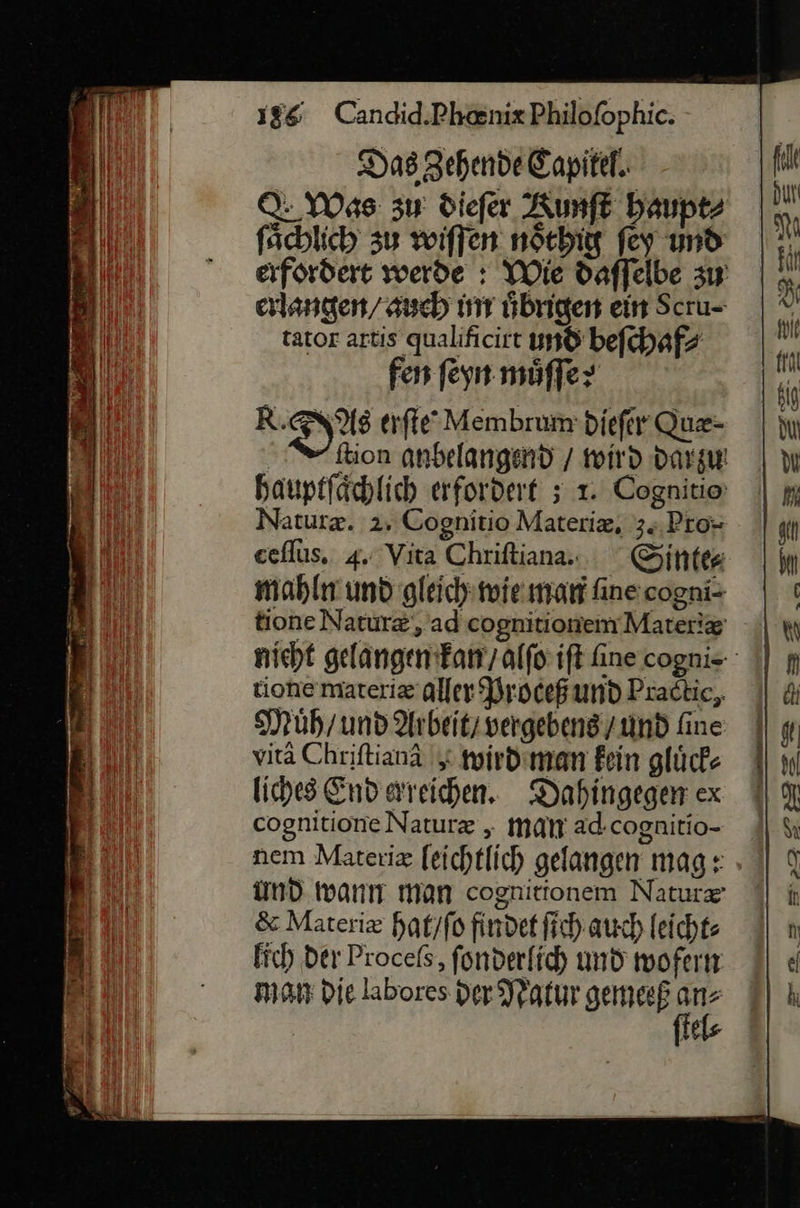 186 Candid. Phœnix Philoſophic.
Das Zehende Capitel.
Q. Was zu dieſer Kunſt haupt⸗
ſaͤchlich zu wiſſen noͤthig ſey und
erfordert werde : Wie daſſelbe zu
erlangen/ auch im uͤbrigen ein Scru-
tator artis qualificirt und beſchaf⸗
fen ſeyn muͤſſe?
R. DAs erſte Membrum dieſer Quæ-
ſtion anbelangend / wird darzu
hauptſaͤchlich erfordert ; 1. Cognitio
Naturæ. 2. Cognitio Materiæ, 3. Pro-
ceſſus. 4. Vita Chriſtiana. Sinte⸗
mahln und gleich wie man ſine cogni-
tione Naturæ, ad cognitionem Materiæ
nicht gelangen kan / alſo iſt ſine cogni-
tione materiæ aller Proceß und Practic,
Muͤh / und Arbeit / vergebens / und ſine
vitâ Chriſtianâ , wird man kein gluͤck⸗
liches End erreichen. Dahingegen ex
cognitione Naturæ , man ad cognitio-
nem Materiæ leichtlich gelangen mag :
und wann man cognitionem Naturæ
& Materiæ hat / ſo findet ſich auch leicht⸗
lich der Proceſs, ſonderlich und wofern
man die labores der Natur gemeeß an⸗
ſtel⸗